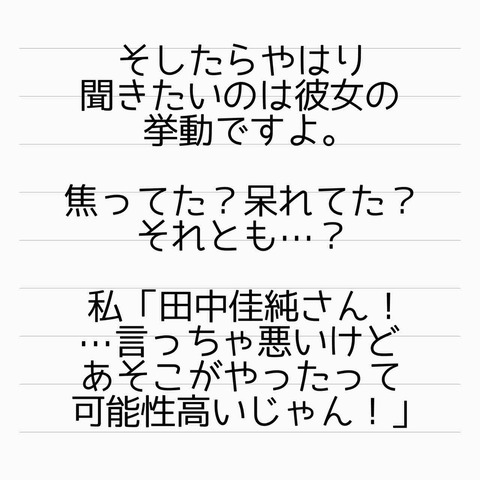 そしたらやはり
聞きたいのは彼女の
挙動ですよ。
焦ってた？呆れてた？
それとも…？
私「田中佳純さん！
…言っちゃ悪いけど
あそこがやったって
可能性高いじゃん！」